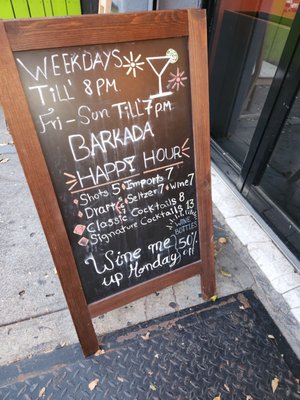 WEEKDAYS
TILL' 8 PM.
Fri-Sun TILL' 7 P.M.
BARKADA
HAPPY HOUR
Shots 5 Imports 7
Draft & Seltzer 7 Wine 7
Classic Cocktails 8
Signature Cocktails 13
Wine me
up Monday
WINE
BOTTLES
50%
off